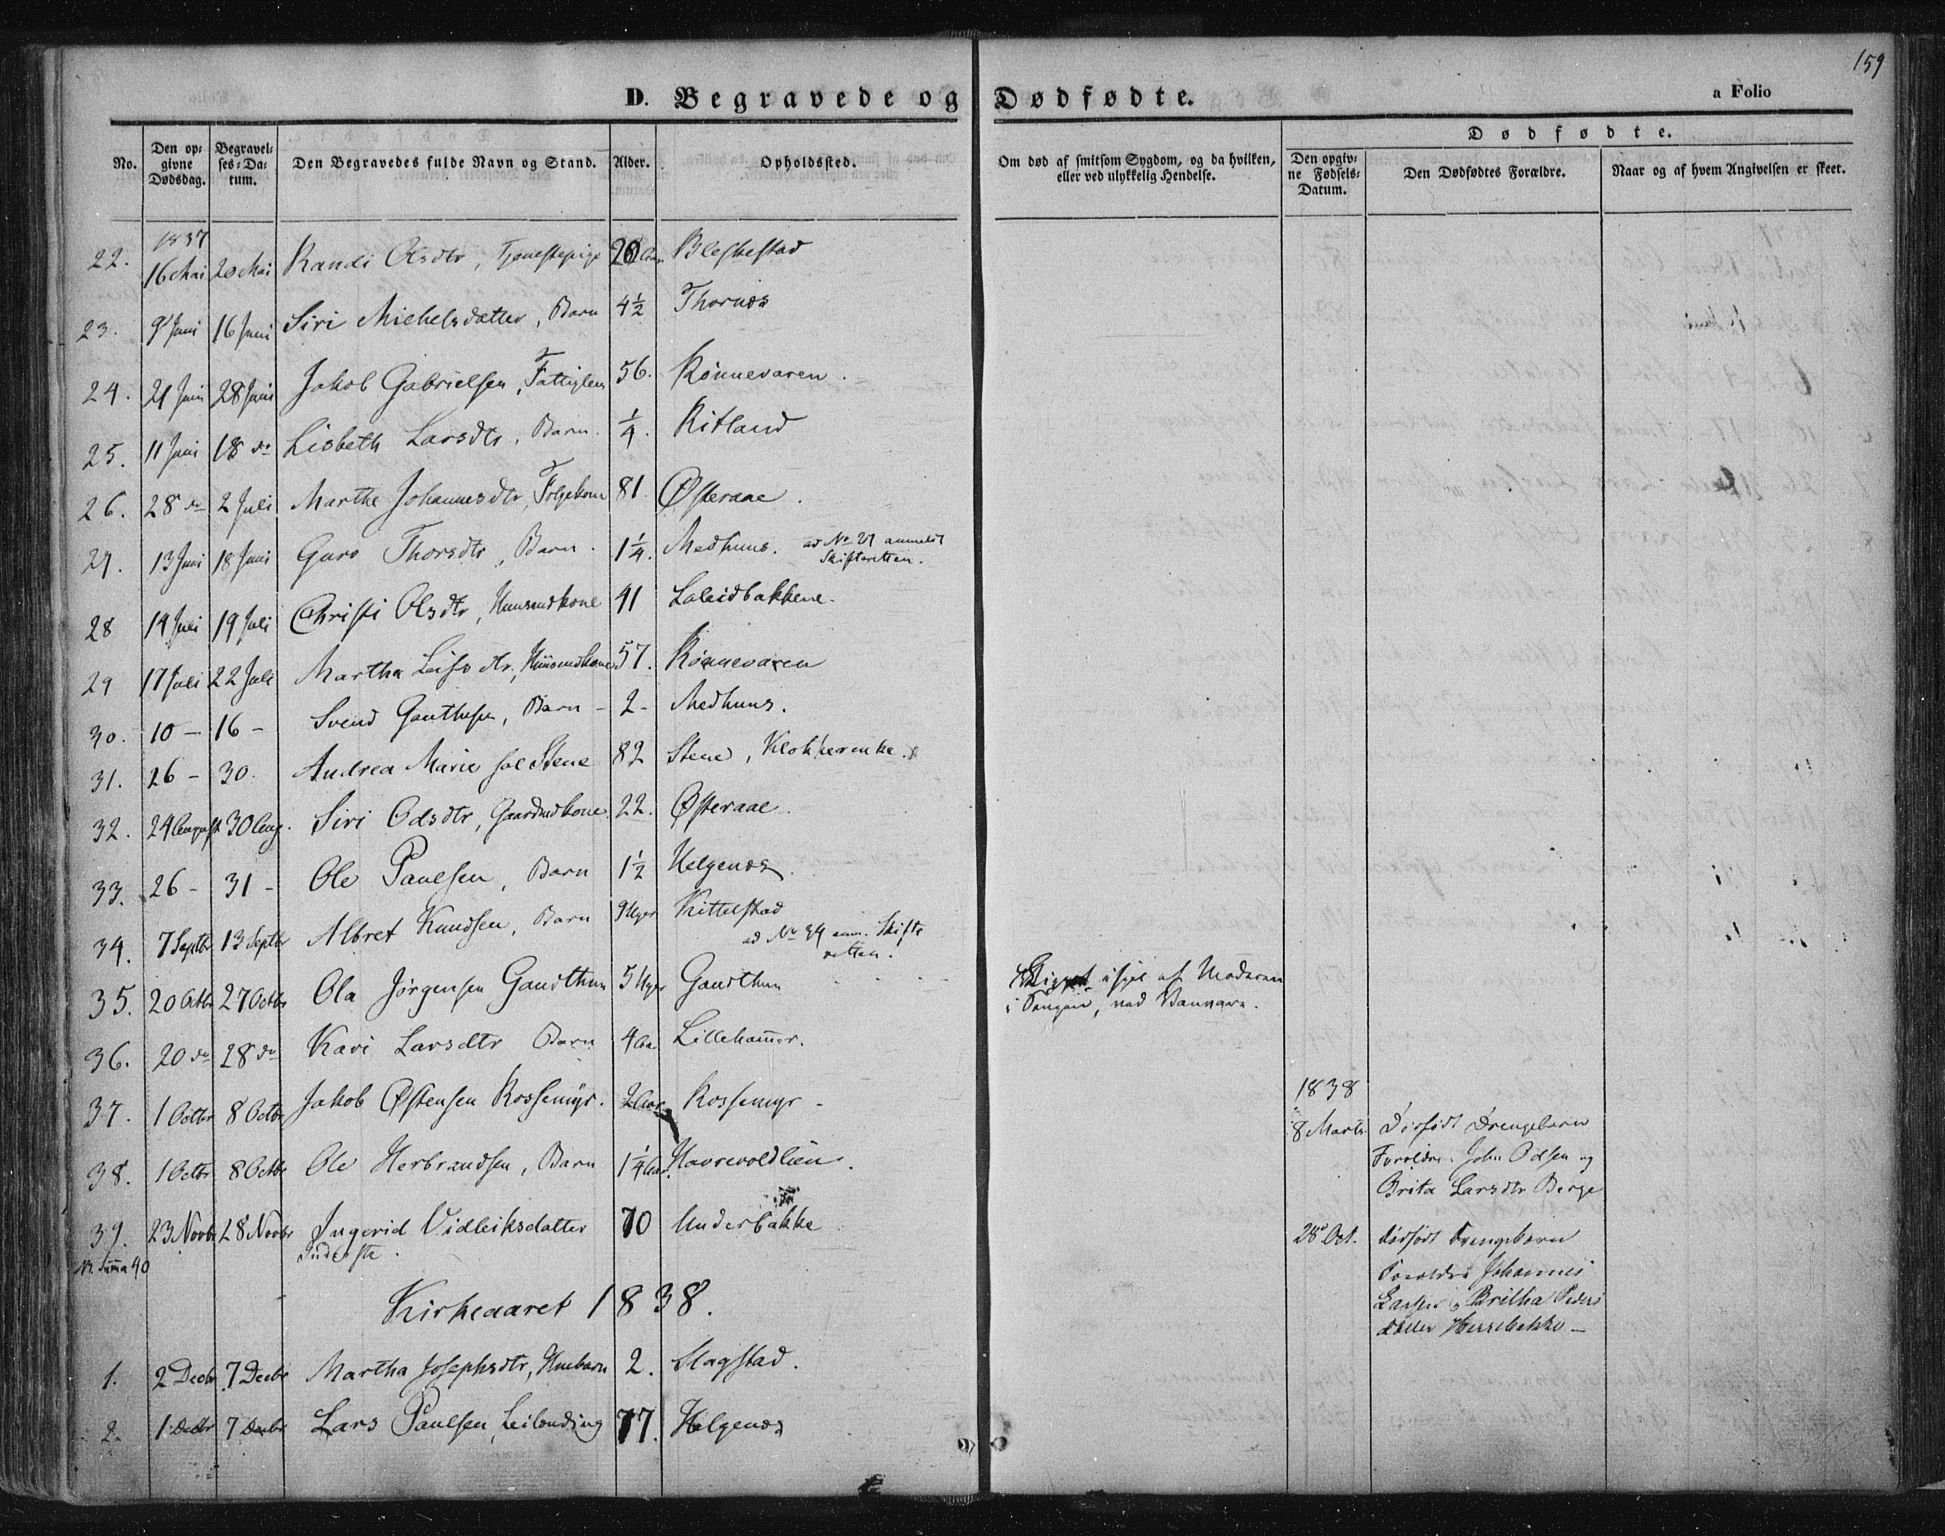 159
D. Begravede og Dødfødte.
a Folio
No.
Den op-
givne
Dødsdag.
Begravel-
ses-Da-
tum.
Den Begravedes fulde Navn og Stand.
Alder.
Opholdsted.
Om død af smitsom Sygdom, og da hvilken,
eller ved ulykkelig Hendelse.
Dødfødte.
Den opgiv-
ne Fødsels-
Datum.
Den Dødfødtes Forældre.
Naar og af hvem Angivelsen er skeet.
1837
22. 16 Mai 20 Mai Randi Olsdtr, Tjenestepige 20 Aar
23. 9 Juni 16 Juni Siri Michelsdatter, Barn 4½ Thornæs
24. 21 Juni 28 Juni Jakob Gabrielsen, Fattiglem 56. Rönnevaren.
25. 11 Juni 18 do Lisbeth Larsdtr, Barn. ¼. Ritland
26. 28 do 2 Juli Marthe Johannesdtr, Folgekone 81. Østeraae.
27. 13 Juni 18 Juni Guro Thorsdtr, Barn. 1¼. Medhuus. ad No 27 anmeldt
Skifteretten.
28 14 Juli 19 Juli Christi Olsdtr, Huusmdkone 41
29 17 Juli 22 Juli Martha dtr, Huusmdkone 57. Rönnevaren
30. 10 - 16 - Svend Gauthesen, Barn - 2 - Medhuus.
31. 26 - 30. Andrea Marie Stene 82 Stene, Klokkerenke.
32. 24 August 30 Aug. Siri Odsdtr, Gaardmdkone 22. Østeraae.
33. 26 - 31 - Ole Paulsen, Barn 1½ Helgenæs.
34. 7 Septbr 13 Septbr Albret Knudsen, Barn 9 Uger Kittelstad
ad No 34 anm. Skifte
retten.
35. 20 Octbr 27 Octbr Ola Jørgensen Gaudthun 5 Uger Gaudthun
ihjel af Moderen
i Sengen, ved Vanvare.
36. 20 do 28 do Kari Larsdtr Barn 4 Aar Lillehamer.
37. 1 Octbr 8 Octbr Jakob Østensen Rossemyr. 2 Aar Rossemyr -
38. 1 Octbr 8 Octbr Ole Herbrandsen, Barn 1¼ Aar. Havrevoldlien.
39. 23 Novbr 28 Novbr Ingerid Vidleiksdatter 70 Underbakke
Inderste.
Summa 40
1838
8 Marts Dødfødt Drengebarn
Forældre. John Odsen og
Brita Larsdtr Berge
28 Oct. dødfødt Drengebarn
Forældre Johannes
Larsen og Britha Peders
datter
Kirkeaaret 1838.
1. 2 Decbr 7 Decbr Martha Josephsdtr, Huusbarn 2. Slagstad.
2. 1 Decbr 7 Decbr Lars Paulsen, Leilænding 77. Helgenæs